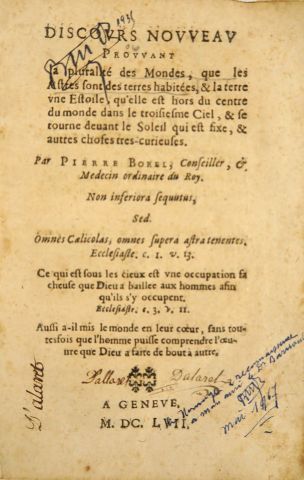 1935
DISCOVRS NOVVEAV
PROVVANT
la pluralité des Mondes, que les
Astres sont des terres habitées, & la terre
vne Estoile, qu'elle est hors du centre
du monde dans le troisiesme Ciel, & se
tourne deuant le Soleil qui est fixe, &
autres choses tres-curieuses.
Par PIERRE BOREL, Conseiller, &
Medecin ordinaire du Roy.
Non inferiora sequutus,
Sed.
Omnes Cælicolas, omnes supera alta tenentes.
Ecclesiaste. c. 1. v. 13.
Ce qui est sous les cieux est vne occupation fa
cheuse que Dieu a baillee aux hommes afin
qu'ils s'y occupent.
Ecclesiaste. c. 3. v. 11.
Aussi a-il mis le monde en leur cœur, sans tou-
tesfois que l'homme puisse comprendre l'œu-
ure que Dieu a faite de bout à autre.
Dalaret
A GENEVE,
M. DC. LVII.
D'alaret
Hommage & reconnaissance
a mon ami le Dr
mai 1967